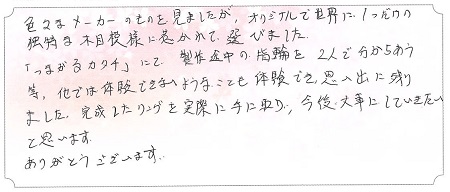 色々なメーカーのものを見ましたが、オリジナルで世界に1つだけの
独特な木目模様に惹かれて、選びました。
「つながるカタチ」にて、製作途中の指輪を2人で分かちあう
等、他では体験できないようなことも体験でき、思い出に残り
ました。完成したリングを実際に手に取り、今後大事にしていきたい
と思います。
ありがとうございます。